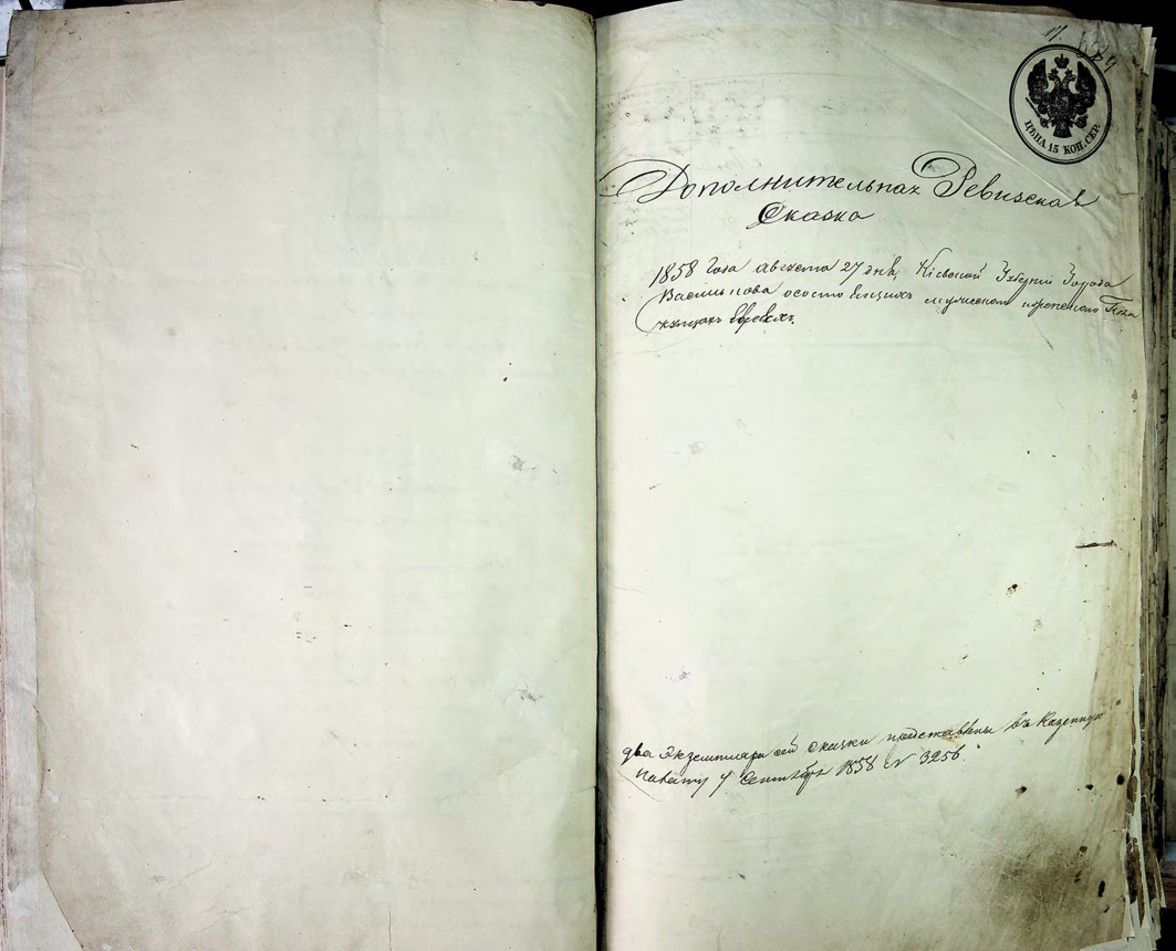 ЦѢНА 15 КОП. СЕР.
Дополнительная Ревизская
Сказка
1858 года августа 27 дня, Кіевской Губерніи Города
Василькова о состоящихъ мужеском и женского Пола
купцахъ Евреяхъ.
два Экземпляра сей Сказки представлены въ Казенную
палату 4 Сентября 1858 N 3256.